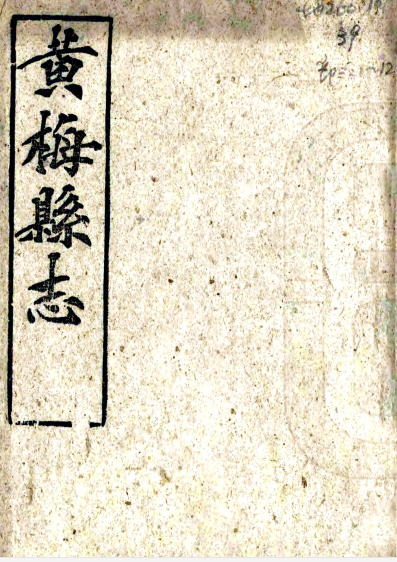 黄梅縣志
39